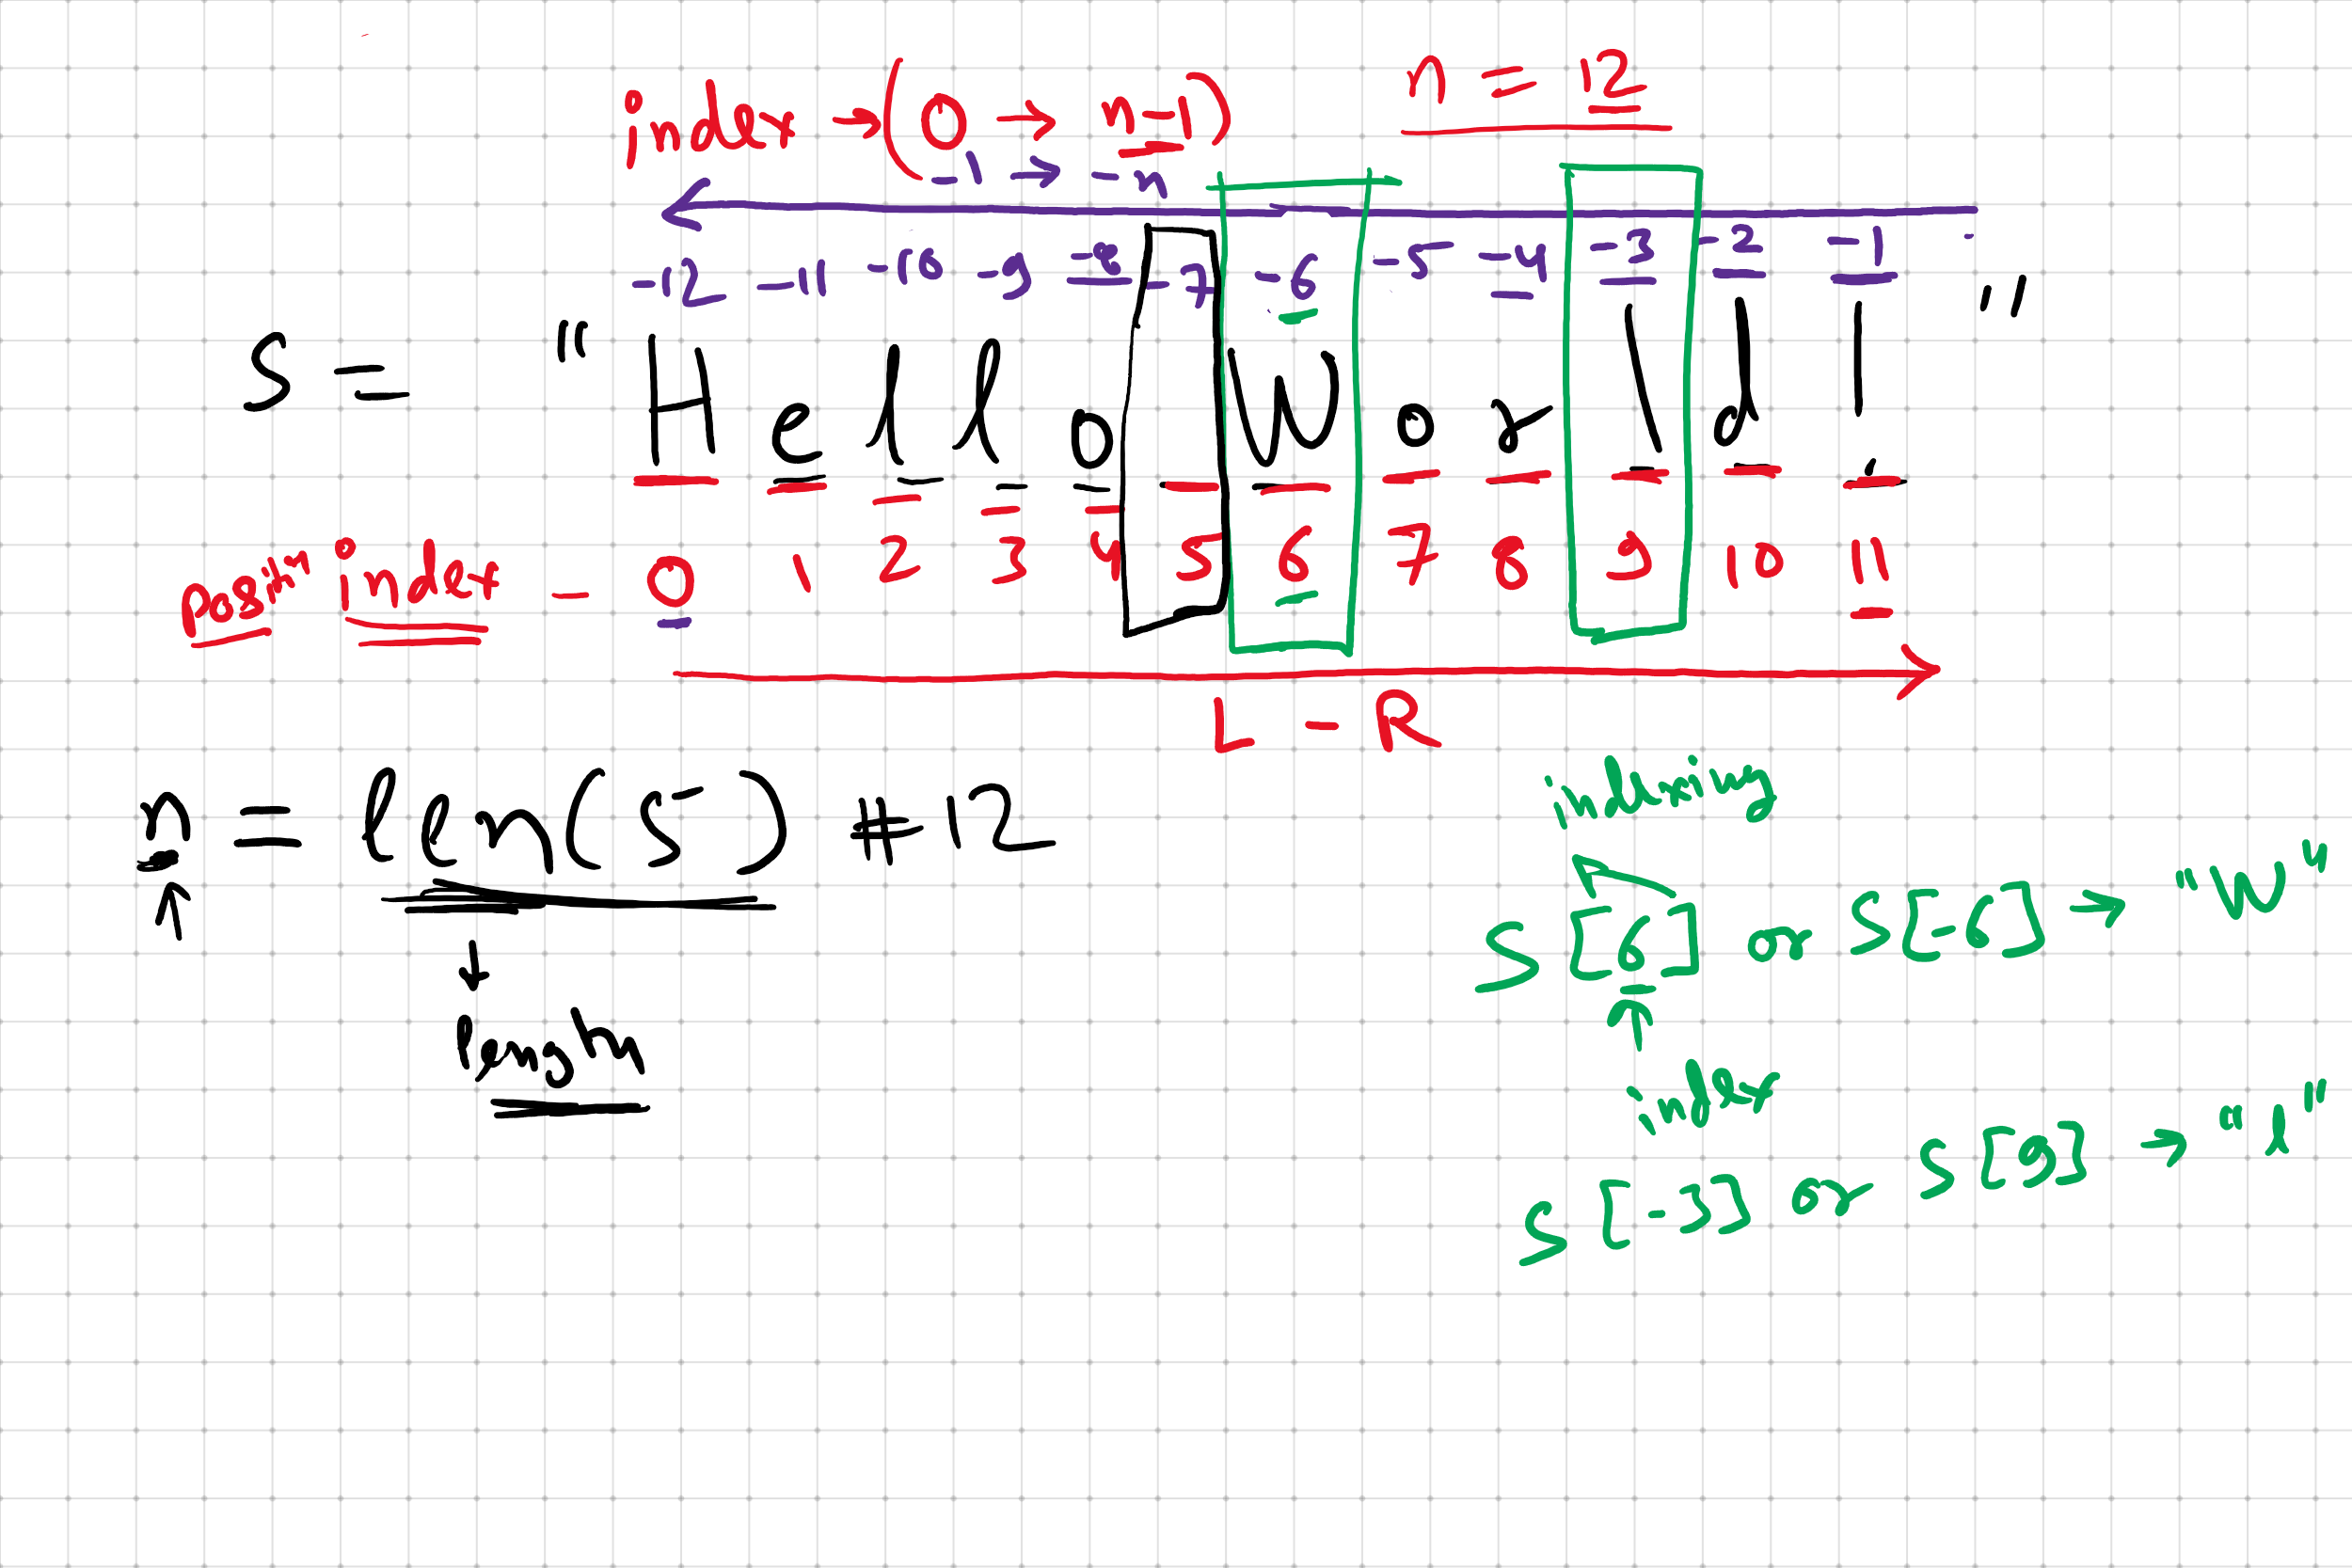 index → (0 → n-1) n = 12
-1 → -n
-12 -11 -10 -9 -8 -7 -6 -5 -4 -3 -2 -1
S = "Hello World!"
index - 0 1 2 3 4 5 6 7 8 9 10 11
L - R
n = len(S) # 12
length
indexing
S[6] or S[-6] → "W"
index
S[-3] or S[9] → "l"